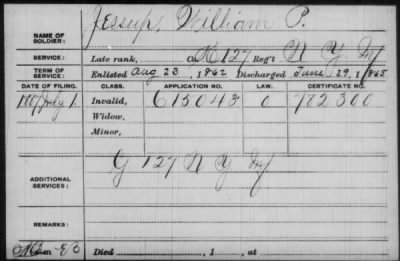 NAME OF SOLDIER: Jessup, William P.
SERVICE: Late rank, Co. K 127 Reg't N Y Inf
TERM OF SERVICE: Enlisted Aug 23, 1862 Discharged June 29, 1865
DATE OF FILING. CLASS. APPLICATION NO. LAW. CERTIFICATE NO.
1887 July 1 Invalid, 615043 782300
Widow,
Minor,
ADDITIONAL SERVICES: G 127 N Y Inf
REMARKS:
Died , 1 , at